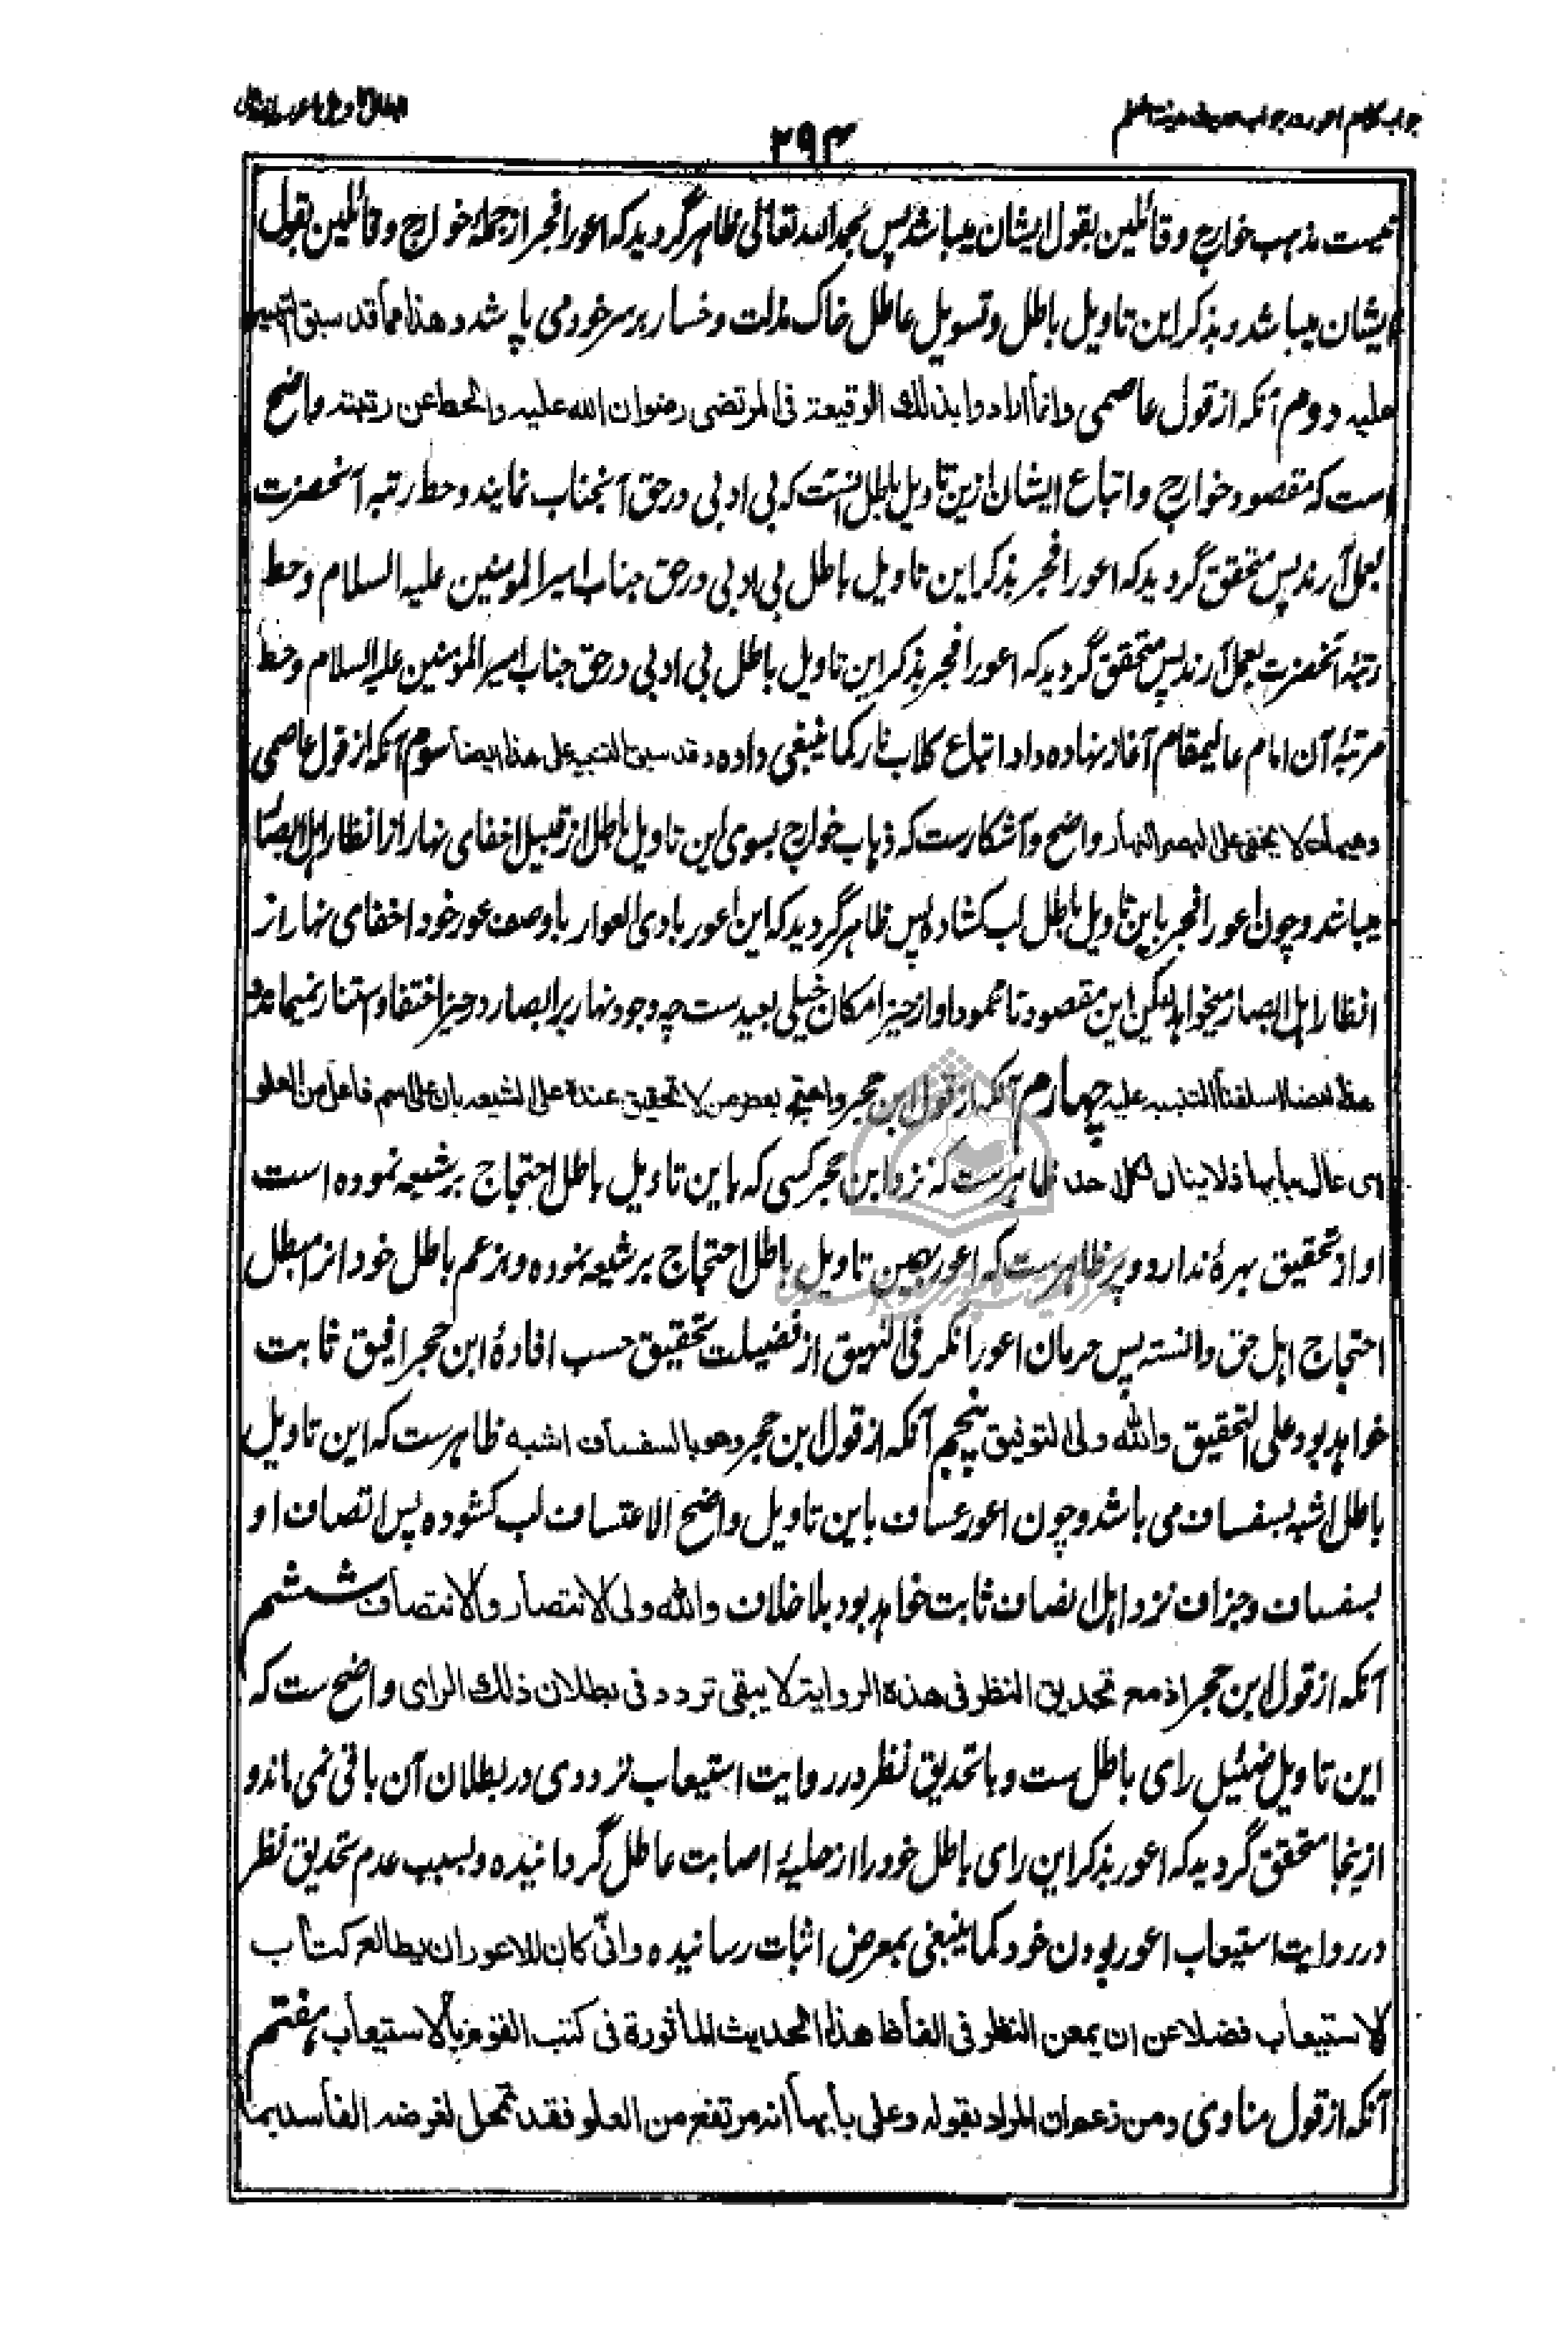 جواب کلام اعور در جواب حدیث مدینة العلم
ابطال تاویل اعور
۲۹۴
نیست مذہب خوارج و قائلین بقول ایشان میباشد پس بحمد اللہ تعالی ظاہر گردید که اعور افجر از جملۂ خوارج و قائلین بقول
ایشان میباشد و بذکر این تاویل باطل و تسویل عاطل خاک مذلت و خسار بر سر خود می پاشد و هذا مما قد سبق التنبیه
علیه دوم آنکه از قول عاصمی وانما ارادوا بذلك الوقیعة فی المرتضی رضوان الله علیه والحط عن رتبته واضح
ست که مقصود خوارج و اتباع ایشان ازین تاویل باطل انست که بی ادبی در حق آنجناب نمایند و حط رتبه آنحضرت
بعمل آرند پس متحقق گردید که اعور افجر بذکر این تاویل باطل بی ادبی در حق جناب امیر المومنین علیه السلام و حط
رتبۂ آنحضرت بعمل آرند پس متحقق گردید که اعور افجر بذکر این تاویل باطل بی ادبی در حق جناب امیر المؤمنین علیه السلام و حط
مرتبۂ آن امام عالیمقام آغاز نهاده داد اتباع کلاب نار کما ینبغی داده و قد سبق التنبیه علی هذا ایضا سوم آنکه از قول عاصمی
وهیهات لا یخفی علی البصر النهار واضح و آشکارست که ذہاب خوارج بسوی این تاویل باطل از قبیل اخفای نہار از انظار اہل ابصار
میباشد و چون اعور افجر باین تاویل باطل لب کشاده پس ظاہر گردید که این اعور بادی العوار با وصف عور خود اخفای نہار از
انظار اہل ابصار میخواہد لیکن این مقصود نا محمود او از حیز امکان خیلی بعیدست چه وجود نہار بر ابصار در حیز اختفا و استتار نمیماند و
هذا ایضا اسلفنا التنبیه علیه چہارم آنکه از قول ابن حجر واحتج بعض من لا تحقیق عنده علی الشیعه بان علی اسم فاعل من العلو
ای عال بابها فلا ینال لکل احد ظاہرست که نزد ابن حجر کسی که باین تاویل باطل احتجاج بر شیعه نموده است
او از تحقیق بهرۂ ندارد و پر ظاہرست که اعور بہمین تاویل باطل احتجاج بر شیعه نموده و بزعم باطل خود انرا مبطل
احتجاج اہل حق دانسته پس حرمان اعور انکر فی النهیق از فضیلت تحقیق حسب افادۂ ابن حجر افیق ثابت
خواہد بود علی التحقیق والله ولی التوفیق پنجم آنکه از قول ابن حجر وهو بالسفساف اشبه ظاہرست که این تاویل
باطل اشبه بسفساف می باشد و چون اعور عساف باین تاویل واضح الاعتساف لب کشوده پس اتصاف او
بسفساف و جزاف نزد اہل انصاف ثابت خواہد بود بلا خلاف والله ولی الانتصار والانتصاف ششم
آنکه از قول ابن حجر اذ مع تحدیق النظر فی هذه الروایة لا یبقی تردد فی بطلان ذلك الرای واضح ست که
این تاویل ضئیل رای باطل ست و با تحدیق نظر در روایت استیعاب ترددی در بطلان آن باقی نمی ماند و
ازینجا متحقق گردید که اعور بذکر این رای باطل خود را از حلیۂ اصابت عاطل گردانیده و بسبب عدم تحدیق نظر
در روایت استیعاب اعور بودن خود کما ینبغی بمعرض اثبات رسانیده وانّی کان للاعور ان یطالع کتاب
الاستیعاب فضلا عن ان یمعن النظر فی الفاظ هذا الحدیث الماثورة فی کتب القوم بالاستیعاب ہفتم
آنکه از قول مناوی ومن زعم ان المراد بقوله وعلی بابها انه مرتفع من العلو فقد تمحل لغرضه الفاسد بما